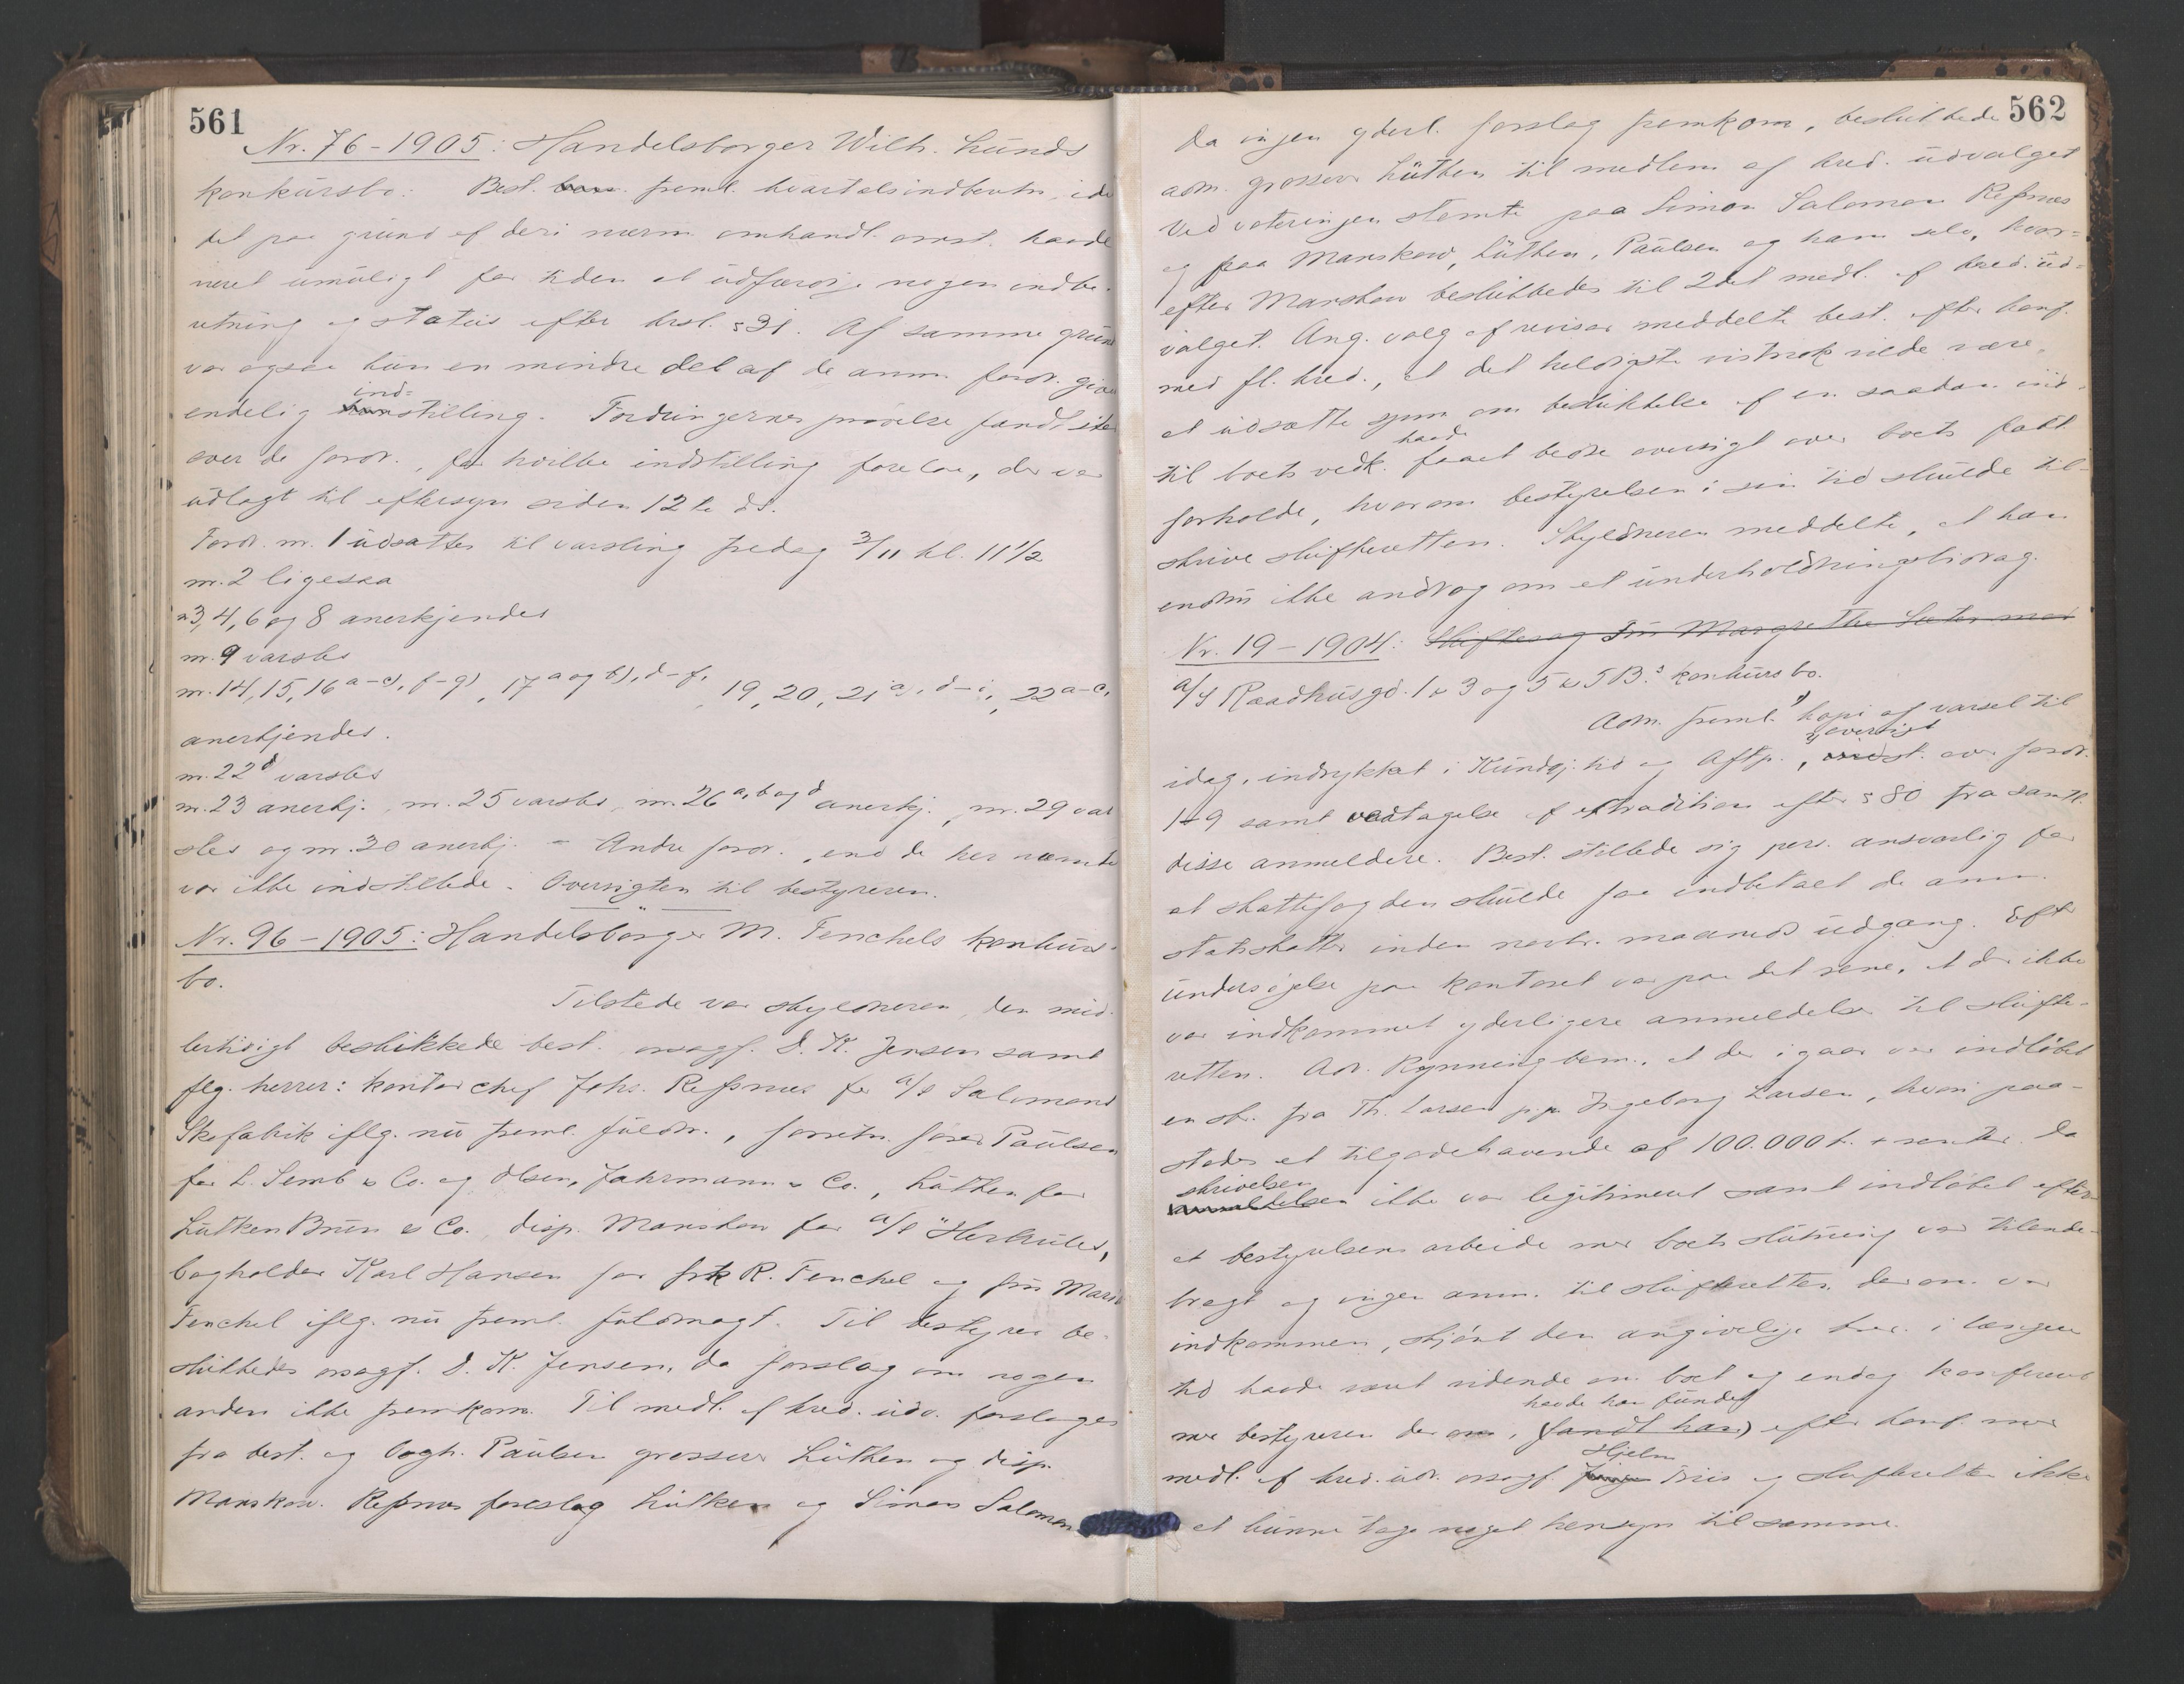 561
Nr. 76-1905: Handelsborger Wilh. Lunds
konkursbo. Best. freml. kvartalsindberetn., idet
det paa grund af deri nærm. omhandl. omst. havde
været umuligt for tiden at udfærdige nogen indbe-
retning og status efter krsl. § 91. Af samme grund
var ogsaa kun en mindre del af de anm. fordr. givet
endelig ind-stilling. Fordringernes prøvelse fandt sted
over de fordr., for hvilke indstilling forelaa, der var
udlagt til eftersyn siden 12te ds.
Fordr. nr. 1 udsattes til varsling fredag 3/11 kl. 11 1/2
nr. 2 ligesaa
" 3, 4, 6 og 8 anerkjendes
nr. 9 varsles
nr. 14, 15, 16 a-c), f-g), 17 a og b), d-f, 19, 20, 21 a), d-i, 22 a-c,
anerkjendes.
nr. 22 d varsles
nr. 23 anerkj., nr. 25 varsles, nr. 26 a, b og d anerkj., nr. 29 var
sles og nr. 30 anerkj. - Andre fordr., end de her nævnte
var ikke indstillede. Oversigten til bestyreren.
Nr. 96-1905: Handelsborger M. Fenchels konkurs-
bo.
Tilstede var skyldneren, den mid-
lertidigt beskikkede best. orsagf. D. K. Jensen samt
flg. herrer: kontorchef Johs. Refsnes for a/s Salomons
Skofabrik iflg. nu freml. fuldm., forretn.fører Paulsen
for L. Semb & Co. og Olsen, Fahrmann & Co., Lütken for
Lütken Brun & Co., disp. Manskow for a/s "Herkules,
bogholder Karl Hansen for frk R. Fenchel og fru Marie
Fenchel iflg. nu freml. fuldmagt. Til bestyrer be-
skikkedes orsagf. D. K. Jensen, da forslag om nogen
anden ikke fremkom. Til medl. af kred. udv. forsloges
fra best. og bogh. Paulsen grosserer Lütken og disp.
Manskow. Refsnes foreslog Lütken og Simon Salomon
562
Da ingen yderl. forslag fremkom, beskikkede
adm. grosserer Lütken til medlem af kred. udvalget
Ved voteringen stemte paa Simon Salomon Refsnæs
og paa Manskow, Lütken, Paulsen og ham selv, hvor-
efter Manskow beskikkedes til 2det medl. af kred. ud-
valget. Ang. valg af revisor meddelte best. efter konf.
med fl. kred., at det heldigste vistnok vilde være
at udsætte spm. om beskikkelse af en saadan ind-
til boets vedk. havde faaet bedre oversigt over boets fakt.
forholde, hvorom bestyrelsen i sin tid skulde til-
skrive skifteretten. Skyldneren meddelte, at han
endnu ikke androg om et underholdningsbidrag.
Nr. 19-1904: Skiftesag Fru Margrethe
a/s Raadhusgd. 1 & 3 og 5 & 5 B.s konkursbo.
Adm. freml. 1) kopi af varsel til
idag, indrykket i Kundgj.tid. og Aftp., 2) oversigt over fordr.
1-9 samt vedtagelse af extradition efter § 80 fra samtl.
disse anmeldere. Best. stillede sig pers. ansvarlig for
at skattefogden skulde faa indbetalt de anm.
statsskatter inden næstn. maaneds udgang. Eft
undersøgelse paa kontoret var paa det rene, at der ikke
var indkommet yderligere anmeldelser til skifte-
retten. Adv. Rynning bem., at der igaar var indløbet
en skr. fra Th. Larsen p.p. Ingeborg Larsen, hvori paa-
stodes et tilgodehavende af 100.000 kr. + renter. Da
skrivelsen ikke var legitimeret samt indløbet efter
at bestyrelsens arbeide med boets slutning var tilende-
bragt og ingen anm. til skifteretten derom var
indkommen, skjønt den angivelige kred. i længere
tid havde været vidende om boet og endog konfereret
med bestyreren derom, (fandt han) havde han fundet efter konf. med
medl. af kred. udv. orsagf. Hjelm Friis og skifteretten ikke
at kunne tage noget hensyn til samme.